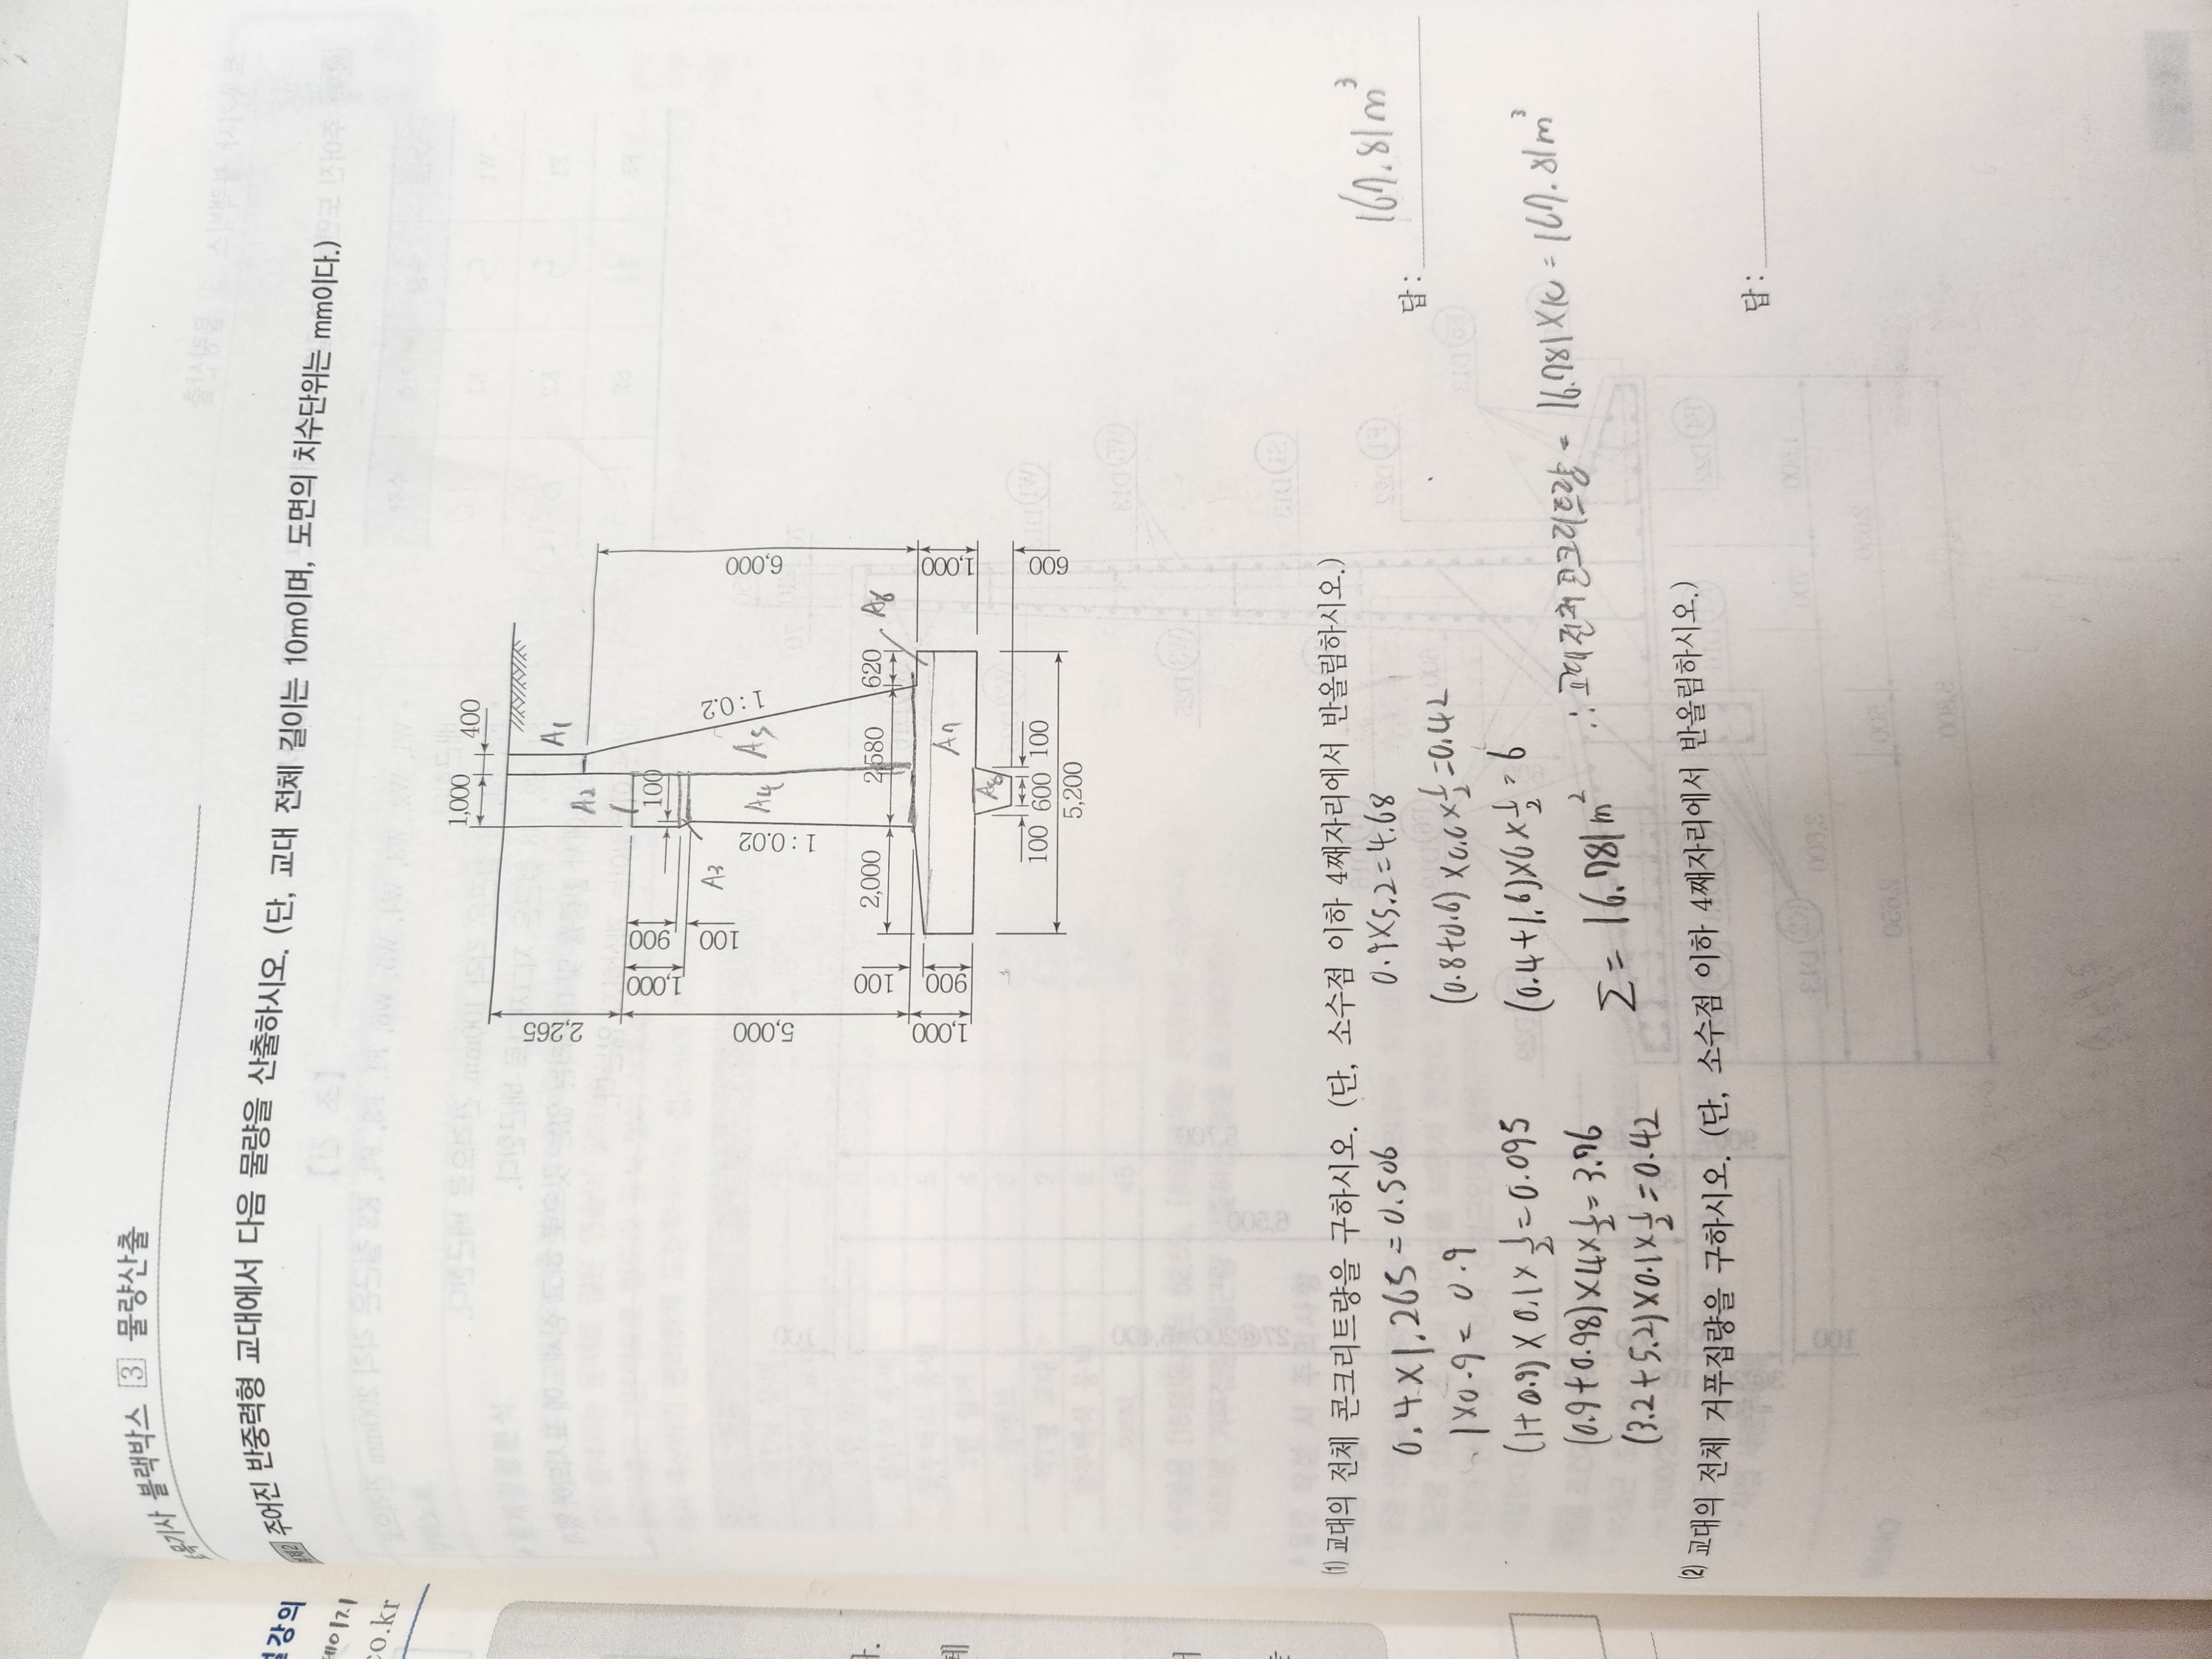 토목기사 블랙박스 3 물량산출
주어진 반중력형 교대에서 다음 물량을 산출하시오. (단, 교대 전체 길이는 10m이며, 도면의 치수단위는 mm이다.)
1,000 400
2,265
A1
A2
6,000
1,000
900
100
100
A3
A4
A5
1 : 0.02
1 : 0.2
5,000
A6
2,000 2,580 620
100
1,000
900
A7
1,000
A8
600
100 600 100
5,200
(1) 교대의 전체 콘크리트량을 구하시오. (단, 소수점 이하 4째자리에서 반올림하시오.)
0.4×1.265=0.506
0.9×5.2=4.68
답 : 167.81m³
1×0.9=0.9
(0.8+0.6)×0.6×1/2=0.42
(1+0.9)×0.1×1/2=0.095
(0.4+1.6)×6×1/2=6
(0.9+0.98)×4×1/2=3.76
∴교대전체콘크리트량= 16.781×10=167.81m³
(3.2+5.2)×0.1×1/2=0.42
Σ=16.781m²
(2) 교대의 전체 거푸집량을 구하시오. (단, 소수점 이하 4째자리에서 반올림하시오.)
답 :
강의
페이지
co.kr